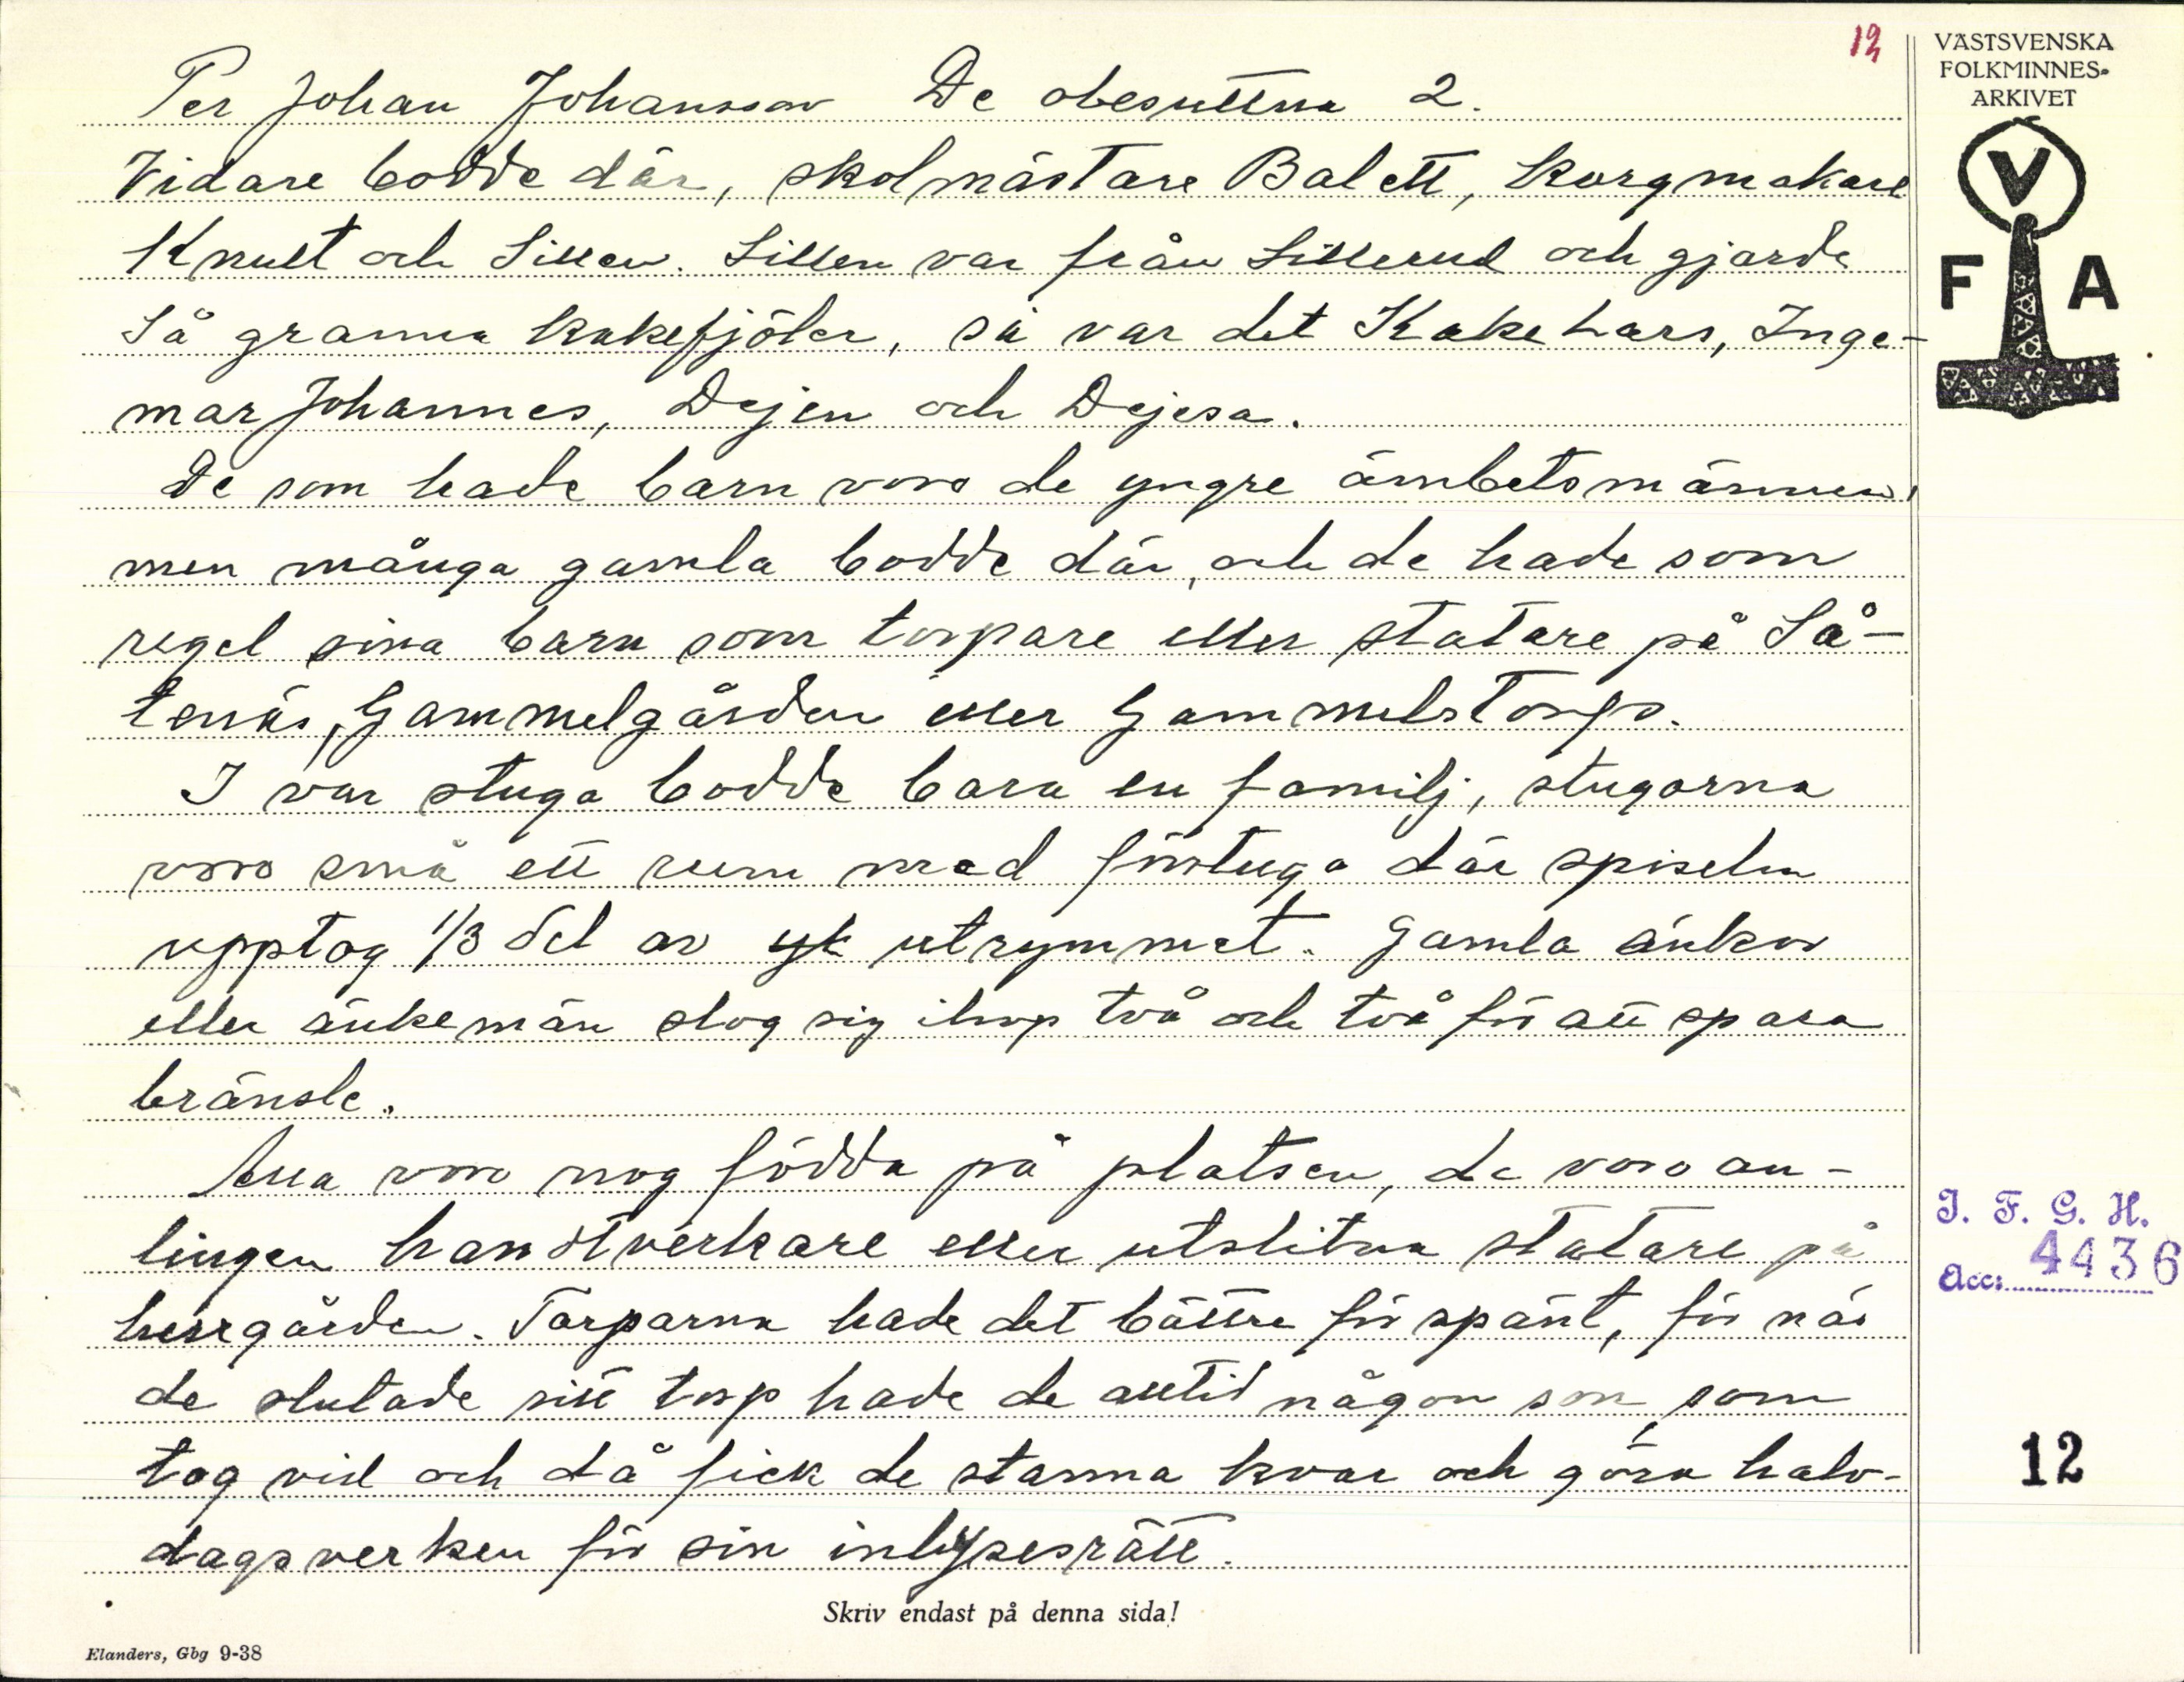 12
VÄSTSVENSKA
FOLKMINNES-
ARKIVET
V
F A
Per Johan Johansson De obesuttna 2.
Vidare bodde där, skolmästare Balett, korgmakare
Knult och Sillen. Sillen var från Sillerud och gjorde
så granna kakefjöler, så var det Kake Lars, Inge-
mar Johannes, Dejen och Dejesa.
De som hade barn voro de yngre ämbetsmännen,
men många gamla bodde där, och de hade som
regel sina barn som torpare eller statare på Så-
tenäs, Gammelgården eller Gammelstorp.
I var stuga bodde bara en familj, stugorna
voro små ett rum med förstuga där spiseln
upptog 1/3 del av utrymmet. Gamla änkor
eller änkemän slog sig ihop två och två för att spara
bränsle.
Alla voro nog födda på platsen, de voro an-
lingen hantverkare eller utslitna statare på
herrgården. Torparna hade det bättre för spänt, för när
de slutade sitt torp hade de alltid någon son, som
tog vid och då fick de stanna kvar och göra halv-
dagsverken för sin inhysesrätt.
I. F. G. H.
Acc: 4436
12
Skriv endast på denna sida!
Elanders, Gbg 9-38